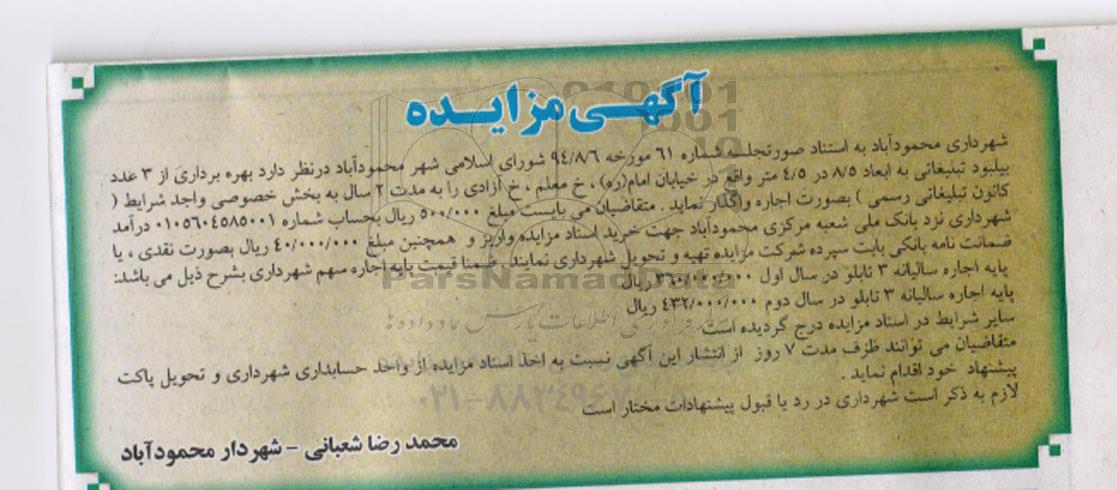 آگهی مزایده
شهرداری محمودآباد به استناد صورتجلسه شماره ۶۱ مورخه ۹۴/۸/۶ شورای اسلامی شهر محمودآباد درنظر دارد بهره برداری از ۳ عدد
بیلبود تبلیغاتی به ابعاد ۸/۵ در ۴/۵ متر واقع در خیابان امام(ره) ، خ معلم ، خ آزادی را به مدت ۲ سال به بخش خصوصی واجد شرایط (
کانون تبلیغاتی رسمی ) بصورت اجاره واگذار نماید . متقاضیان می بایست مبلغ ۵۰۰/۰۰۰ ریال بحساب شماره ۰۱۰۵۶۰۴۵۸۵۰۰۱ درآمد
شهرداری نزد بانک ملی شعبه مرکزی محمودآباد جهت خرید اسناد مزایده واریز و همچنین مبلغ ۴۰/۰۰۰/۰۰۰ ریال بصورت نقدی ، یا
ضمانت نامه بانکی بابت سپرده شرکت مزایده تهیه و تحویل شهرداری نمایند. ضمنا قیمت پایه اجاره سهم شهرداری بشرح ذیل می باشد:
پایه اجاره سالیانه ۳ تابلو در سال اول ۳۶۰/۰۰۰/۰۰۰ ریال
پایه اجاره سالیانه ۳ تابلو در سال دوم ۴۳۲/۰۰۰/۰۰۰ ریال
سایر شرایط در اسناد مزایده درج گردیده است
متقاضیان می توانند ظرف مدت ۷ روز از انتشار این آگهی نسبت به اخذ اسناد مزایده از واحد حسابداری شهرداری و تحویل پاکت
پیشنهاد خود اقدام نماید .
لازم به ذکر است شهرداری در رد یا قبول پیشنهادات مختار است
محمد رضا شعبانی – شهردار محمودآباد
ParsNamadData